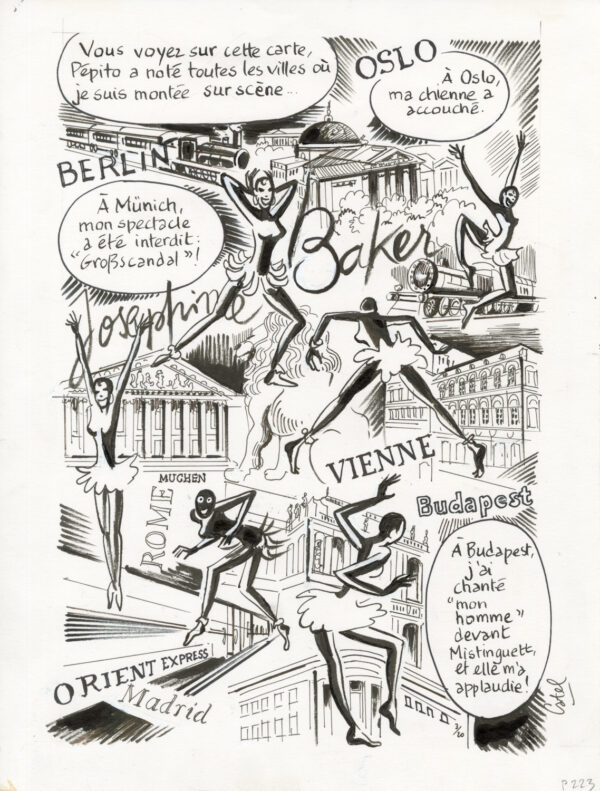 Vous voyez sur cette carte,
Pépito a noté toutes les villes où
je suis montée sur scène...
OSLO
À Oslo,
ma chienne a
accouché.
BERLIN
À Münich,
mon spectacle
a été interdit:
"Großscandal"!
Joséphine
Baker
VIENNE
MUGHEN
ROME
Budapest
À Budapest,
j'ai
chanté
"mon
homme"
devant
Mistinguett,
et elle m'a
applaudie!
ORIENT EXPRESS
Madrid
Catel
P.223